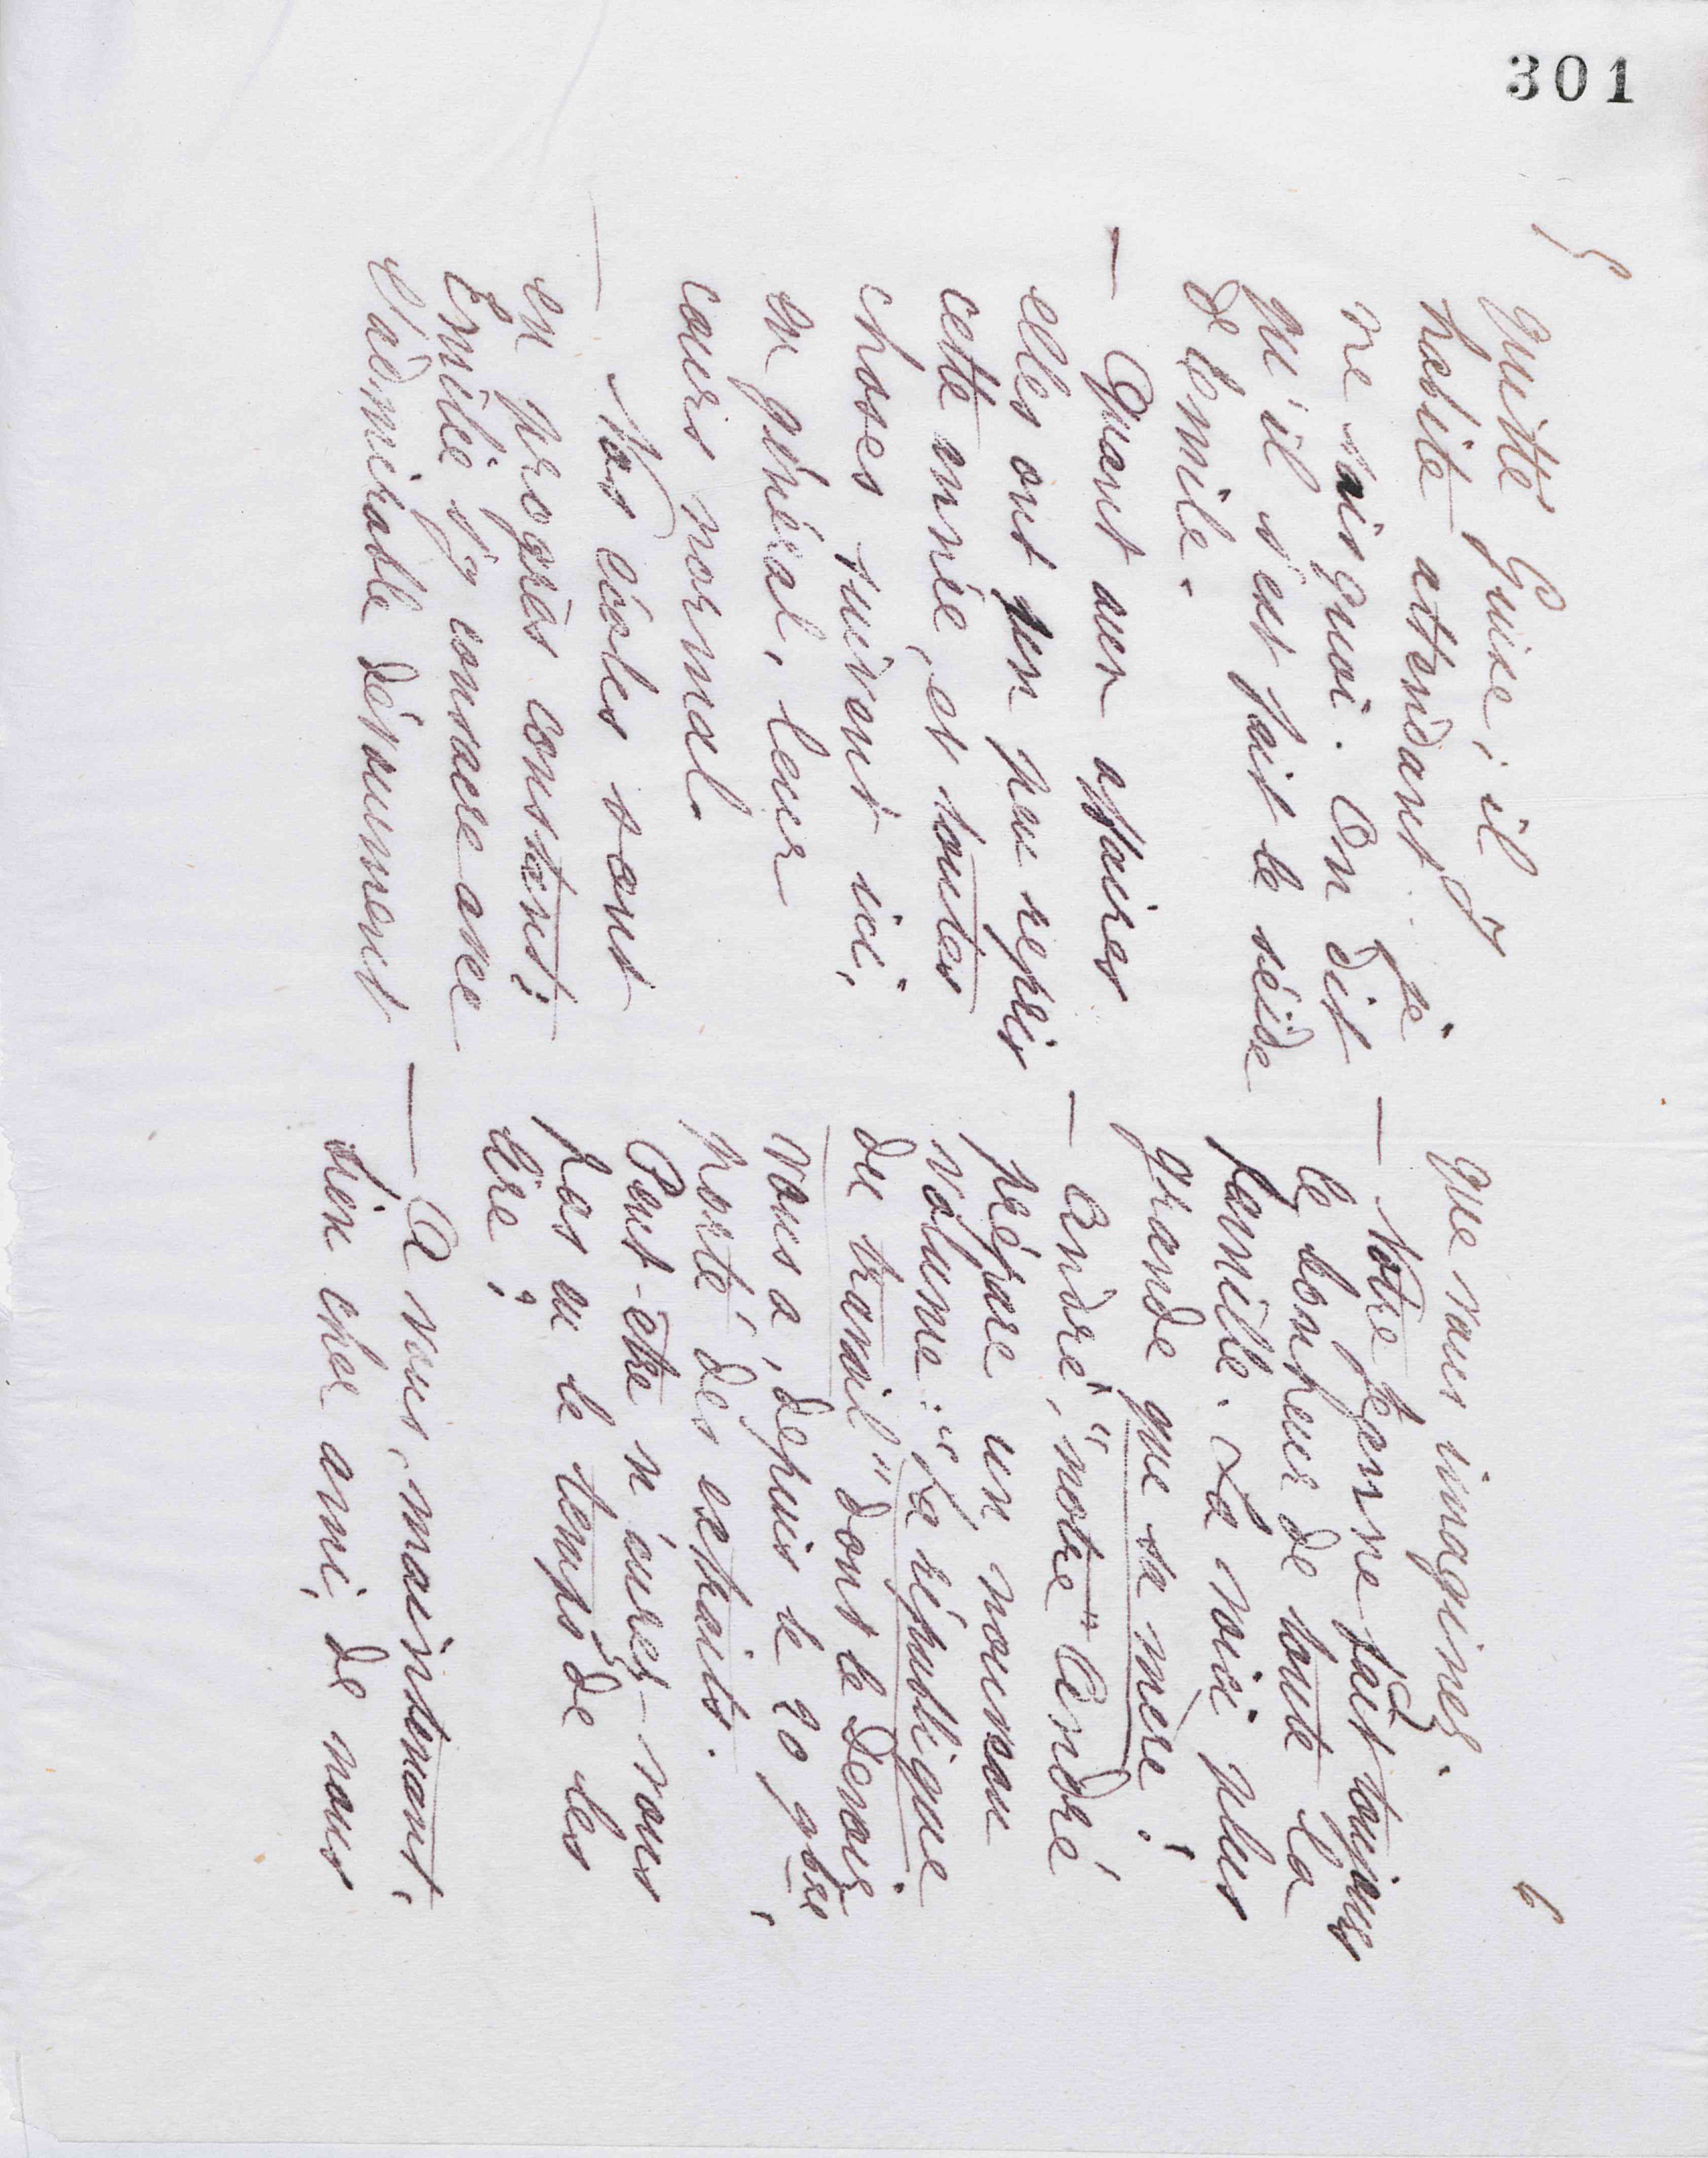 301
5
quitté Guise, il y
habite attendant je
ne sais quoi. On dit
qu'il s'est fait le séide
de Emile.
— Quant aux affaires
elles ont un peu repris
cette année, et toutes
choses suivent ici,
en général, leur
cours normal.
— Nos écoles sont
en progrès constant;
Emilie s'y consacre avec
l'admirable dévouement
6
que vous imaginez.
— Notre Jeanne fait toujours
le bonheur de toute la
famille. La voici plus
grande que sa mère!
— André, "notre" André
prépare un nouveau
volume: "La république
du travail" dont le Devoir
vous a, depuis le 20 9bre,
porté des extraits.
Peut-être n'aurez-vous
pas eu le temps de les
lire?
— A vous, maintenant,
bien cher ami, de nous